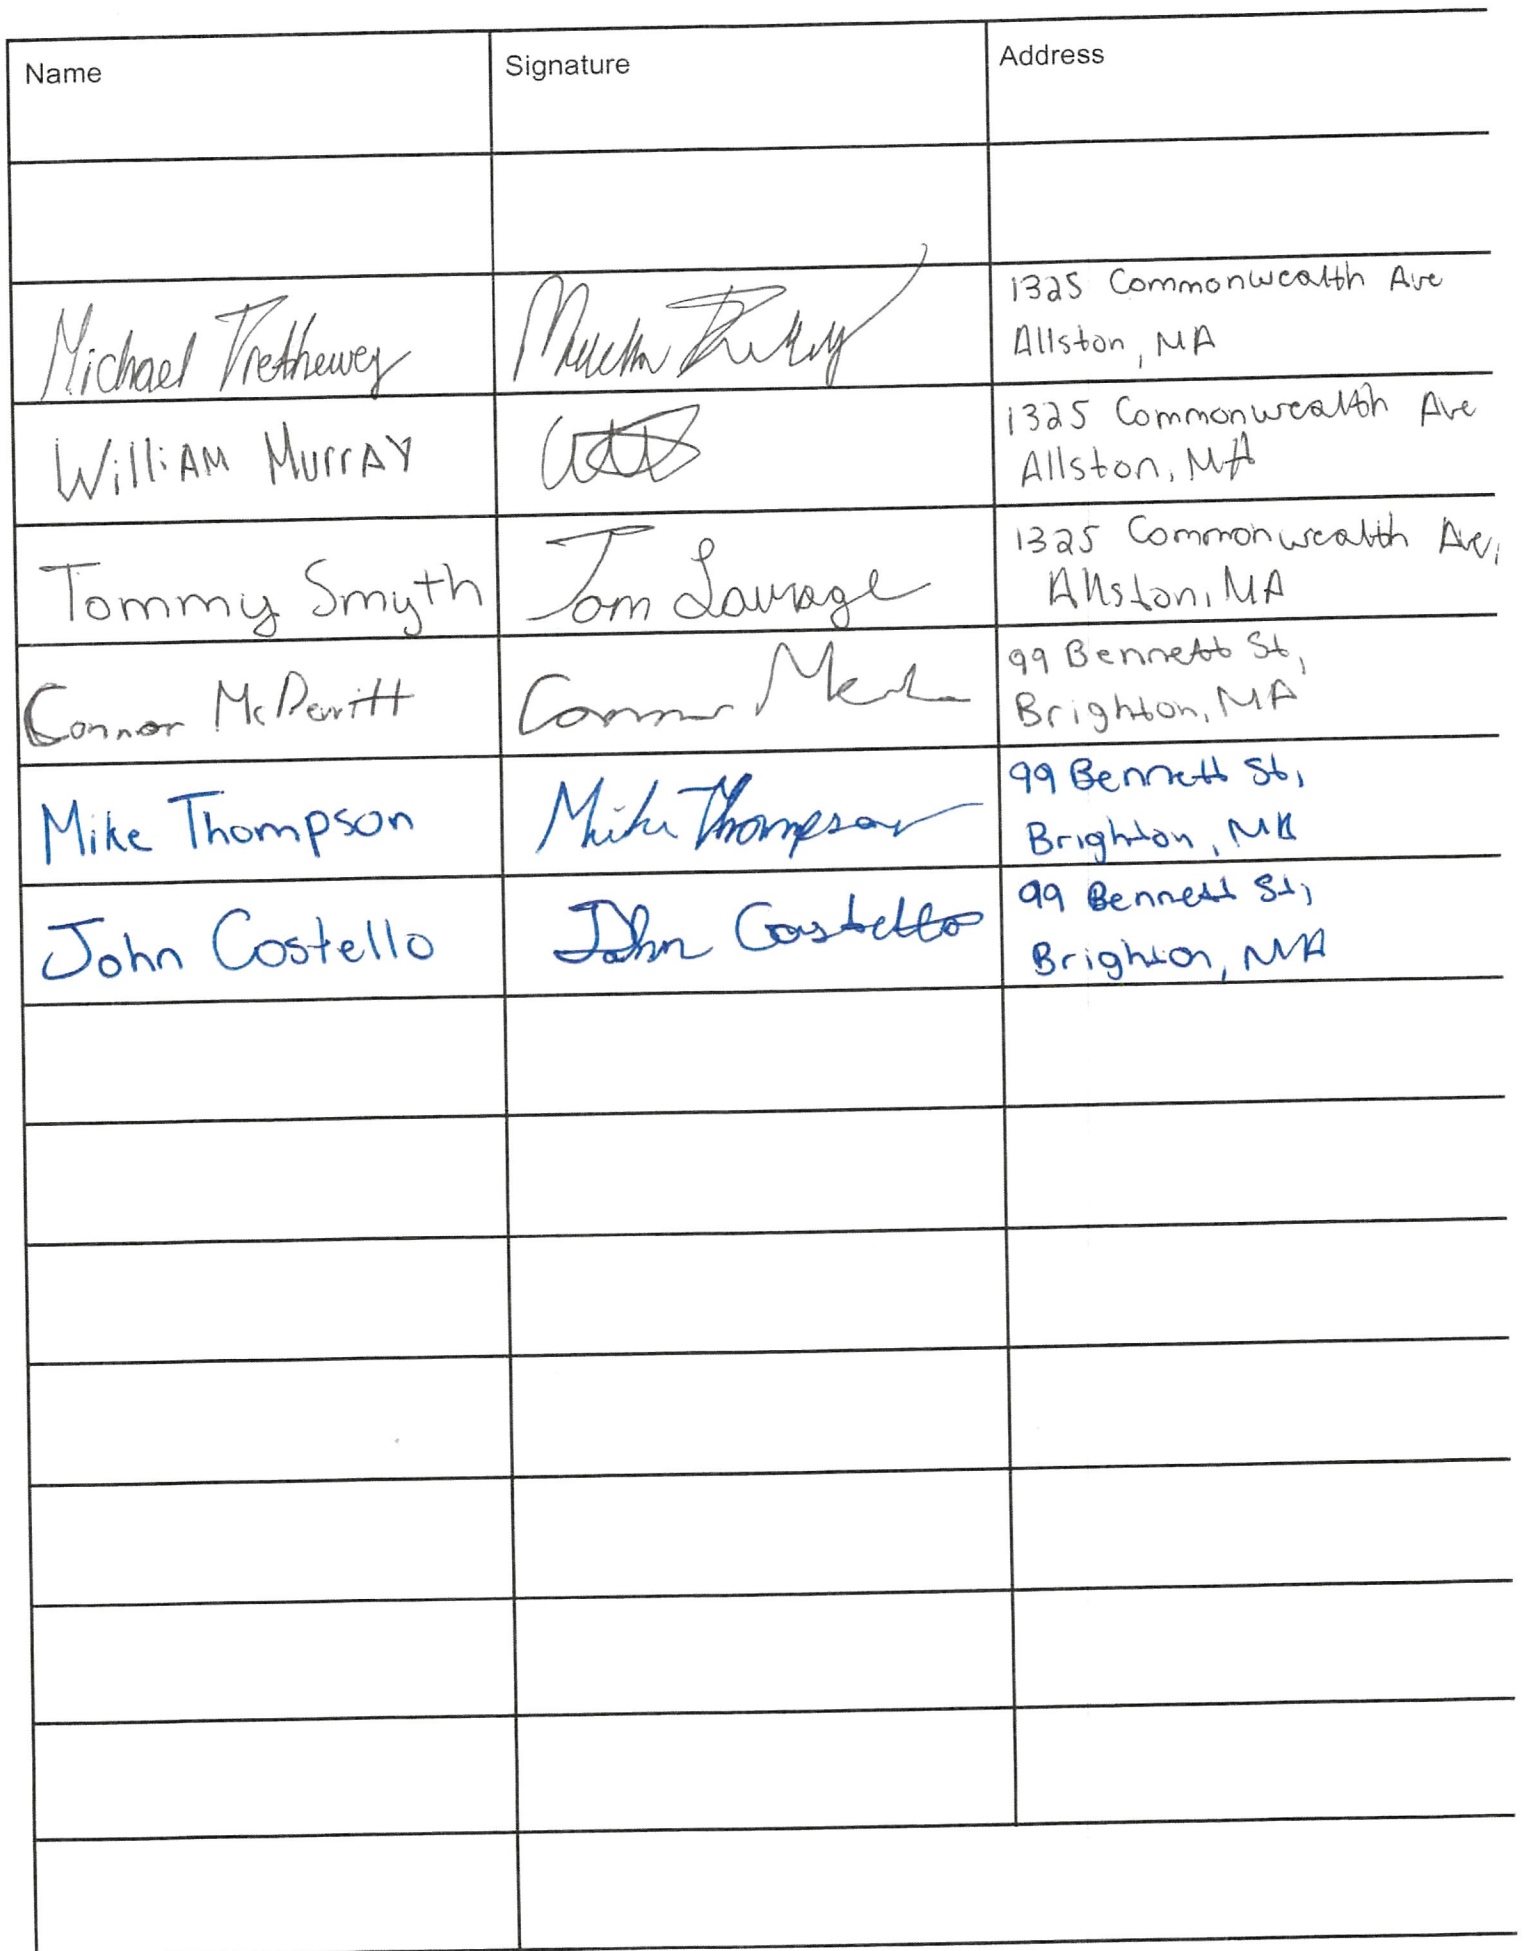 Name Signature Address
Michael Trethewey 1325 Commonwealth Ave
Allston, MA
William Murray 1325 Commonwealth Ave
Allston, MA
Tommy Smyth Tom 1325 Commonwealth Ave,
Allston, MA
Connor McDevitt Connor 99 Bennett St,
Brighton, MA
Mike Thompson Mike Thompson 99 Bennett St,
Brighton, MA
John Costello John Costello 99 Bennett St,
Brighton, MA